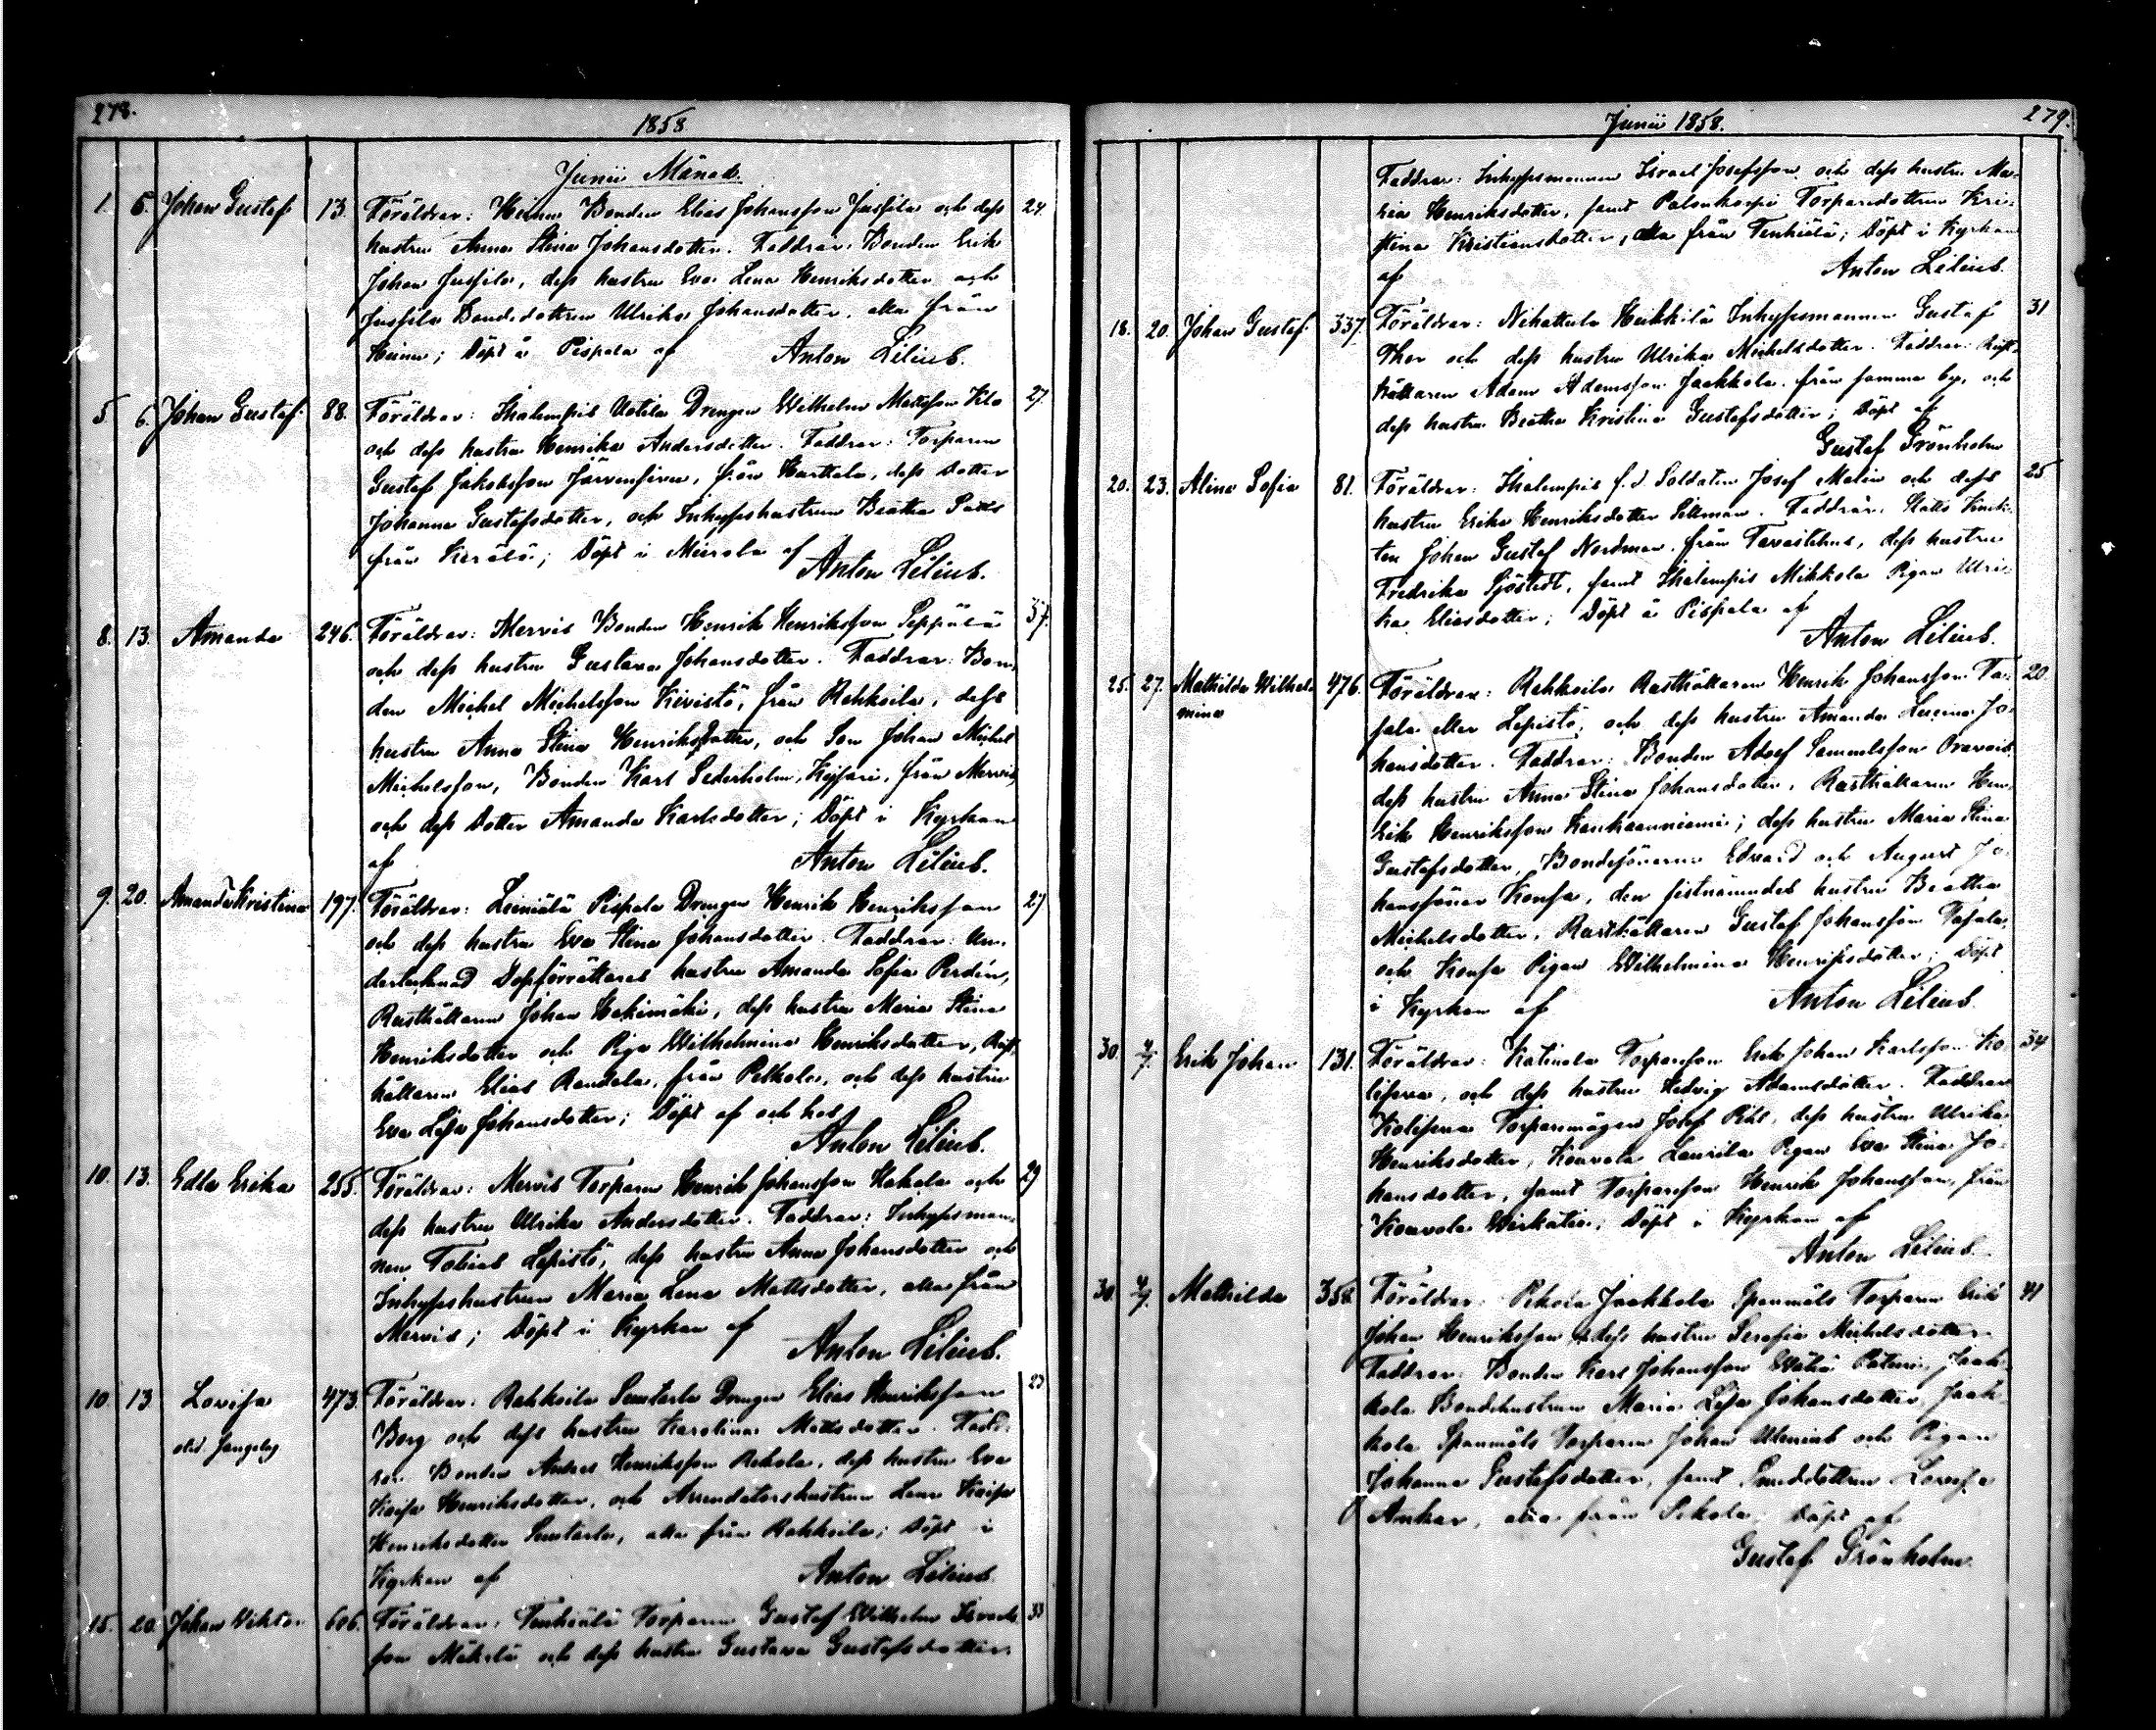 278.
1858
Junii Månad.
1. 6. Johan Gustaf. 13. Föräldrar: Heinu Bonden Elias Johansson Jussila och dess 24.
hustru Anna Stina Johansdotter. Faddrar: Bonden Erik
Johan Jussila, dess hustru Eva Lena Henriksdotter och
Jussila Bondedottren Ulrika Johansdotter, alla från
Heinu; Döpt å Pispala af Anton Lilius.
5 6. Johan Gustaf. 88. Föräldrar: Ihalempis Uotila Drengen Wilhelm Mattsson Kilo 27.
och dess hustru Henrika Andersdotter. Faddrar: Torparen
Gustaf Jakobsson Järvensivu, från Karttala, dess dotter
Johanna Gustafsdotter, och Inhyseshustrun Beatha
från; Döpt i Meirola af
Anton Lilius.
8. 13. Amanda 246. Föräldrar: Mervis Bonden Henrik Henriksson Seppälä 37.
och dess hustru Gustava Johansdotter. Faddrar: Bon-
den Michel Michelsson Kivistö, från Rahkoila, dess
hustru Anna Stina Henriksdotter, och Son Johan Michel
Michelsson, Bonden Karl Sederholm, från Mervis,
och dess Dotter Amanda Karlsdotter; Döpt i Kyrkan
af Anton Lilius.
9. 20. Amanda Kristina 197. Föräldrar: Leiniälä Pispala Drengen Henrik Henriksson 27
och dess hustru Eva Stina Johansdotter. Faddrar: Un-
dertecknad Dopförrättares hustru Amanda Sofia Perdén,
Rusthållaren Johan Hakimäki, dess hustru Maria Stina
Henriksdotter och Piga Wilhelmina Henriksdotter, Rust-
hållaren Elias Randala, från Pelkola, och dess hustru
Eva Lisa Johansdotter; Döpt af och hos
Anton Lilius.
10. 13. Edla Erika 255. Föräldrar: Mervis Torparen Henrik Johansson Hakala och 29
dess hustru Ulrika Andersdotter. Faddrar: Inhysesman-
nen Tobias Lepistö, dess hustru Anna Johansdotter och
Inhyseshustrun Maria Lena Mattsdotter, alla från
Mervis; Döpt i Kyrkan af
Anton Lilius.
10. 13 Lovisa 473. Föräldrar: Rahkoila Suntarla Drengen Elias Henriksson 23
Borg och dess hustru Karolina Mattsdotter. Fadd-
rar: Bonden Anders Henriksson Rekola, dess hustru Eva
Kaisa Henriksdotter, och Arrendatorshustrun Lena Kaisa
Henriksdotter Suntarla, alla från Rahkoila; Döpt i
Kyrkan af Anton Lilius.
15. 20. Johan Viktor 606. Föräldrar: Tenhiälä Torparen Gustaf Wilhelm Israels- 33
son Mäkelä och dess hustru Gustava Gustafsdotter.
Junii 1858.
279.
Faddrar: Inhysesmannen Israel Josefsson och dess hustru Ma-
ria Henriksdotter, samt Palonkorpi Torparedottren Kri-
stina Kristiansdotter, alla från Tenhiälä; Döpt i Kyrkan
af Anton Lilius.
18. 20. Johan Gustaf. 337. Föräldrar: Nihattula Heikkilä Inhysesmannen Gustaf 31
Thor och dess hustru Ulrika Michelsdotter. Faddrar: Rust-
hållaren Adam Adamsson Jaakkola från samma by, och
dess hustru Beatha Kristina Gustafsdotter; Döpt af
Gustaf Grönholm
20. 23. Alina Sofia 81. Föräldrar: Ihalempis f.d. Soldaten Josef Malin och dess 25
hustru Erika Henriksdotter Sillman. Faddrar:
Johan Gustaf Nordman från Tavastehus, dess hustru
Fredrika Sjöstedt, samt Ihalempis Mikkola Pigan Ulri-
ka Eliasdotter; Döpt å Pispala af
Anton Lilius.
25. 27. Mathilda Wilhel- 476. Föräldrar: Rahkoila Rusthållaren Henrik Johansson Ta- 20.
mina
pala eller Lepistö, och dess hustru Amanda Lucina Jo-
hansdotter. Faddrar: Bonden Adolf Sammelsson Oravais,
dess hustru Anna Stina Johansdotter, Rusthållaren Hen-
rik Henriksson Kankaanniemi; dess hustru Maria Stina
Gustafsdotter, Bondesönerne Edvard och August Jo-
hanssöner Konsa, den sistnämndes hustru Beatha
Michelsdotter, Rusthållaren Gustaf Johansson Tapala,
och Konsa Pigan Wilhelmina Henriksdotter; Döpt
i Kyrkan af Anton Lilius.
30. 4/7. Erik Johan 131. Föräldrar: Katinala Torparesson Erik Johan Karlsson Ko- 34
liseva, och dess hustru Hedvig Adamsdotter. Faddrar
Koliseva Torparmågen Josef Pihl, dess hustru Ulrika
Henriksdotter, Kouvola Laurila Pigan Eva Stina Jo-
hansdotter, samt Torparesson Henrik Johansson, från
Kouvola; Döpt i Kyrkan af
Anton Lilius.
30. 4/7. Mathilda 358. Föräldrar: Pekola Jaakkola Spanmåls Torparen Erik 41
Johan Henriksson & dess hustru Serafia Michelsdotter
Faddrar: Bonden Karl Johansson, Jaak-
kola Bondehustrun Maria Lisa Johansdotter, Jaak-
kola Spanmåls Torparen Johan och Pigan
Johanna Gustafsdotter, samt Smeddottren Lovisa
alla från Pekola; Döpt af
Gustaf Grönholm.